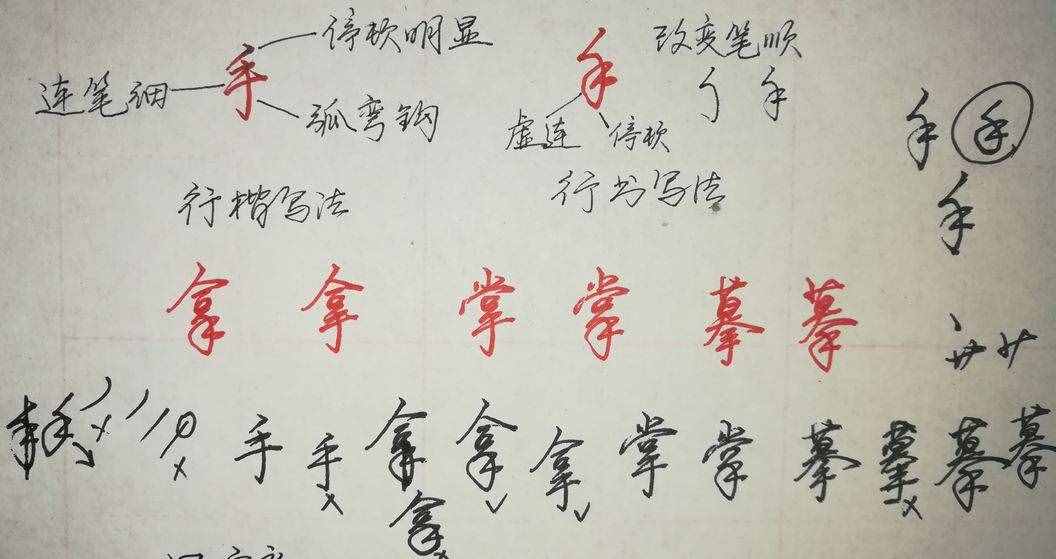 停顿明显
手
连笔细
弧弯钩
行楷写法
手
改变笔顺
手
虚连 停顿
行书写法
手 手
手
拿 拿 掌 掌 摹 摹
手 手 手 拿 拿 拿 掌 掌 摹 摹 摹 摹
拿